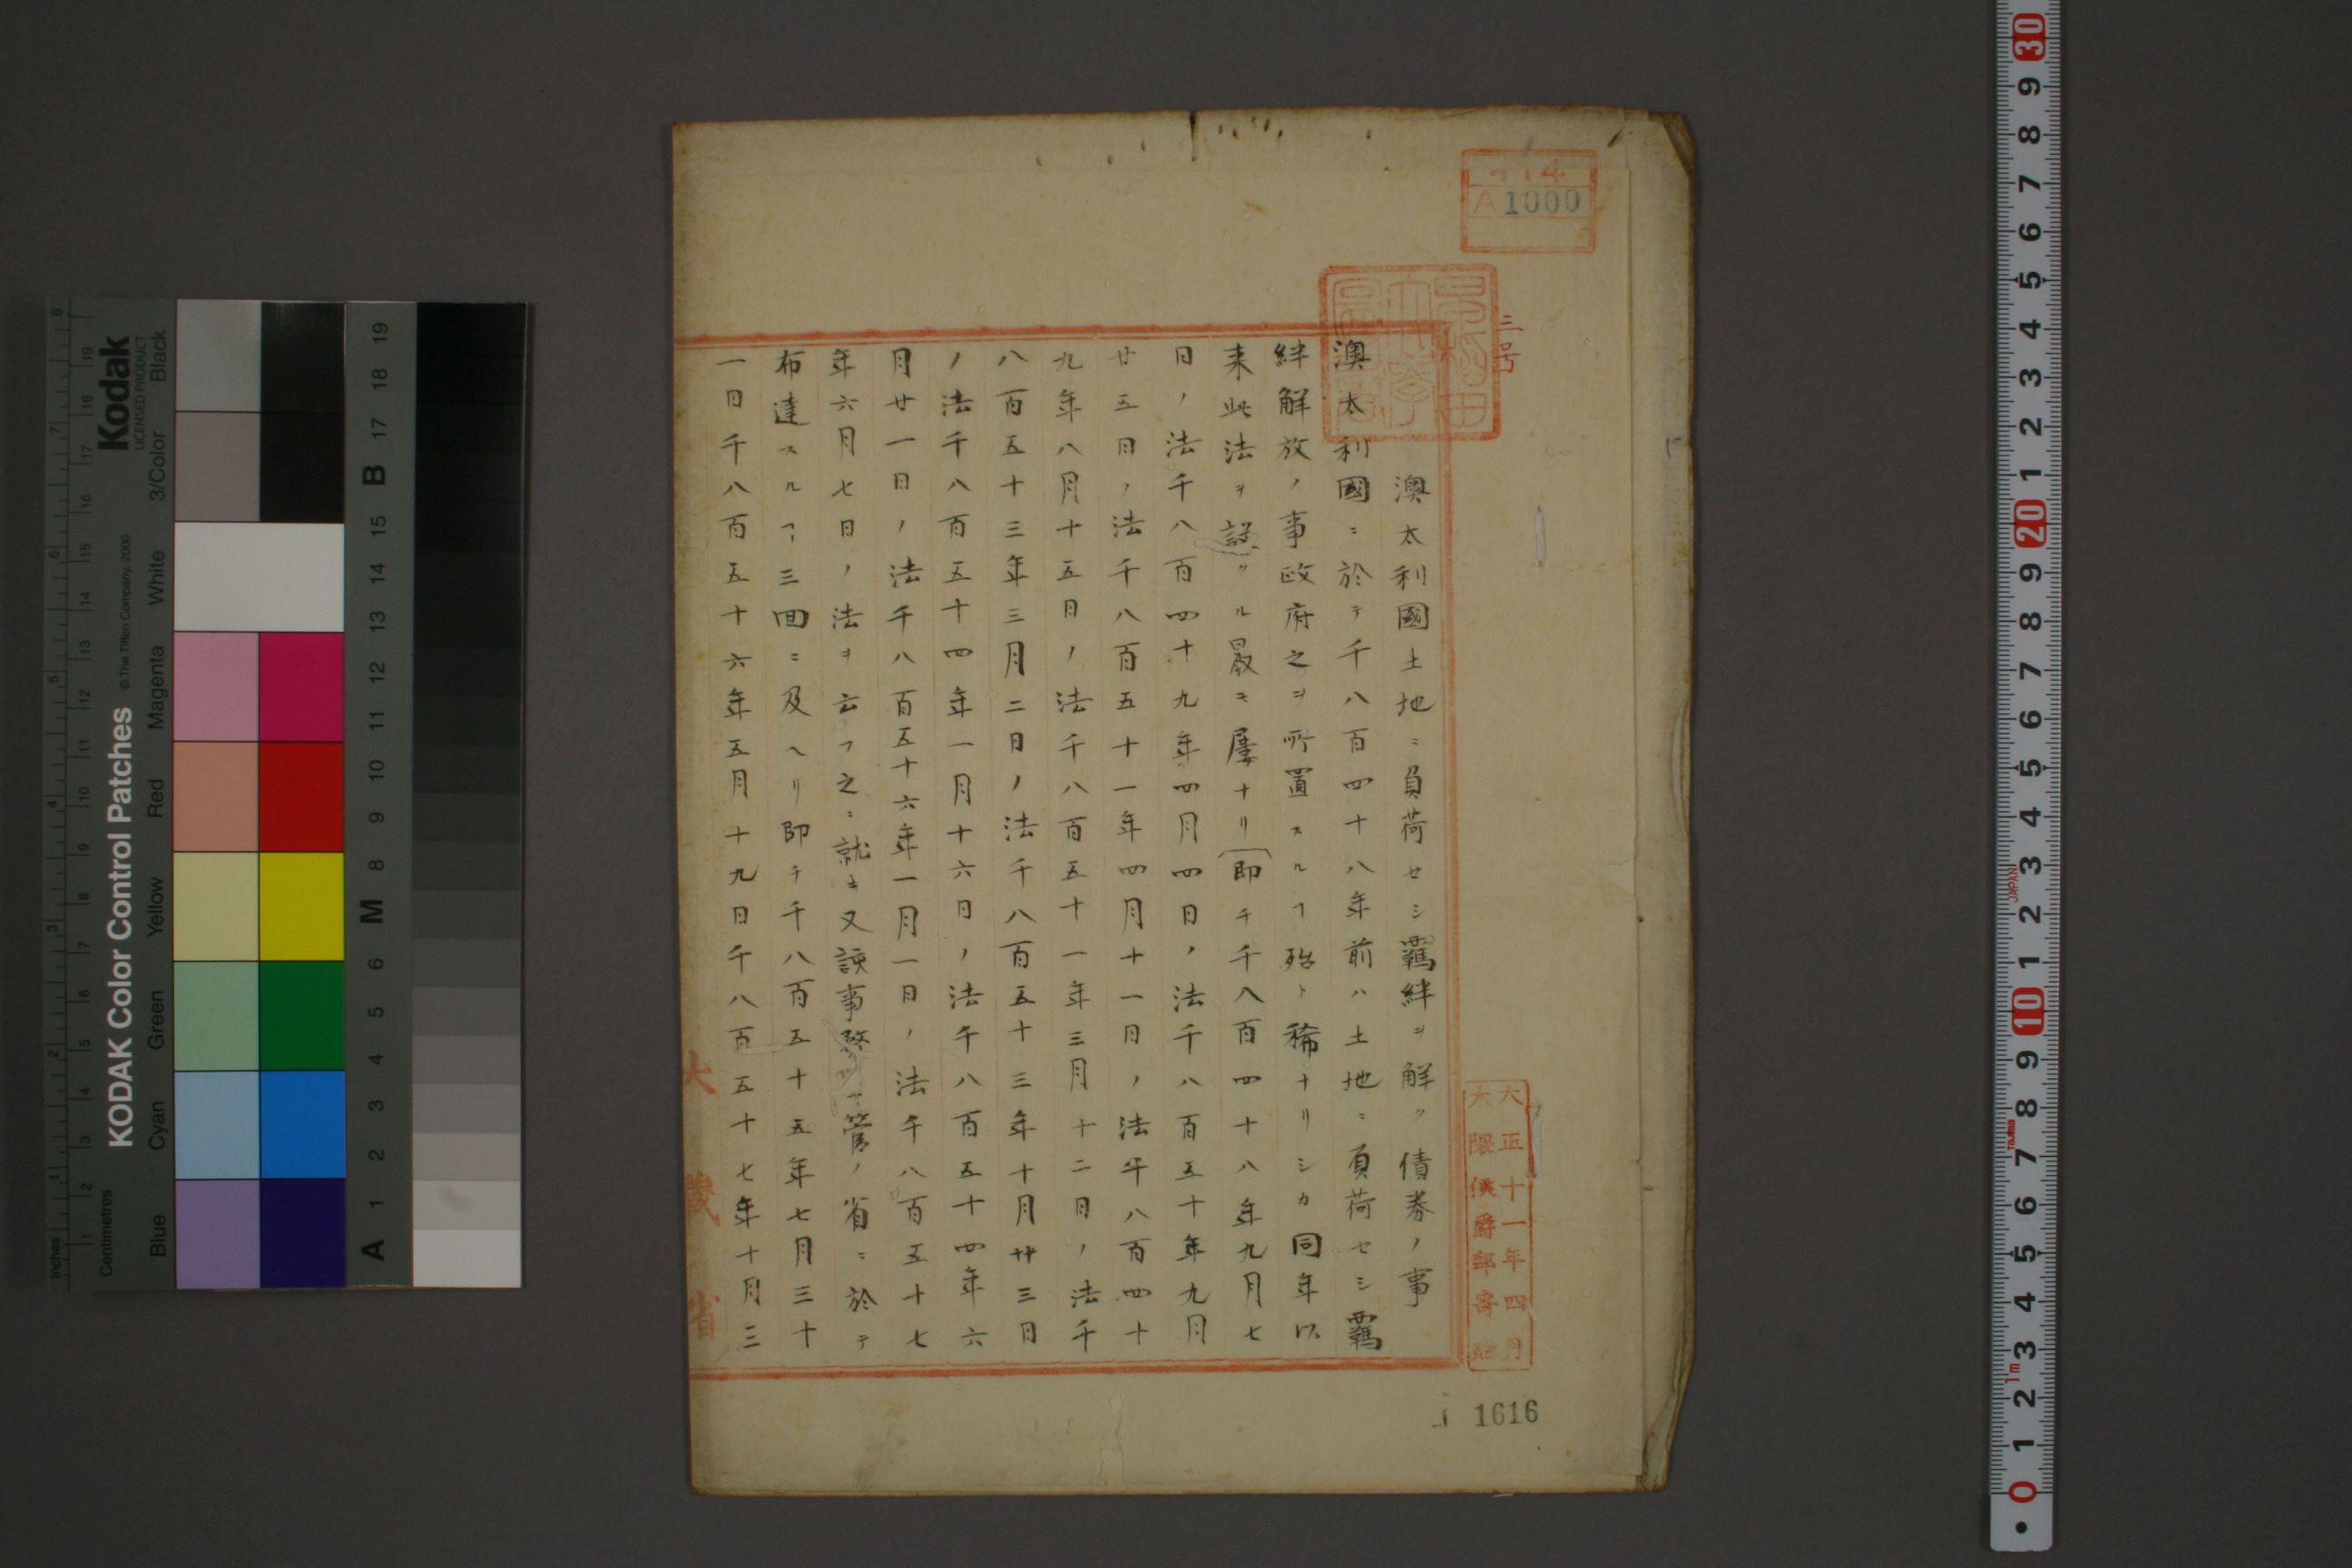 三号
澳太利國土地ニ負荷セシ羈絆ヲ解ク債券ノ事
澳太利國ニ於テ千八百四十八年前ハ土地ニ負荷セシ羈
絆解放ノ事政府之ヲ所置スルヿ殆ト稀ナリシカ同年以
来此法ヲ設クル最モ屡ナリ(即チ千八百四十八年九月七
日ノ法千八百四十九年四月四日ノ法千八百五十年九月
廿五日ノ法千八百五十一年四月十一日ノ法千八百四十
九年八月十五日ノ法千八百五十一年三月十二日ノ法千
八百五十三年三月二日ノ法千八百五十三年十月廿三日
ノ法千八百五十四年一月十六日ノ法千八百五十四年六
月廿一日ノ法千八百五十六年一月一日ノ法千八百五十七
年六月七日ノ法ヲ云フ之ニ就キ又該事務管ノ省ニ於テ
布達スルヿ三囬ニ及ヘリ即チ千八百五十五年七月三十
一日千八百五十六年五月十九日千八百五十七年十月三
大藏省
早稲田大學圖書
A1000
大正十一年四月
大隈侯爵邸寄贈
1616
KODAK Color Control Patches
© The Tiffen Company, 2000
Kodak
LICENSED PRODUCT
Inches
Centimetres
Blue
Cyan
Green
Yellow
Red
Magenta
White
3/Color
Black
A 1 2 3 4 5 6 M 8 9 10 11 12 13 14 15 B 17 18 19
JAPAN
Tajima
1m